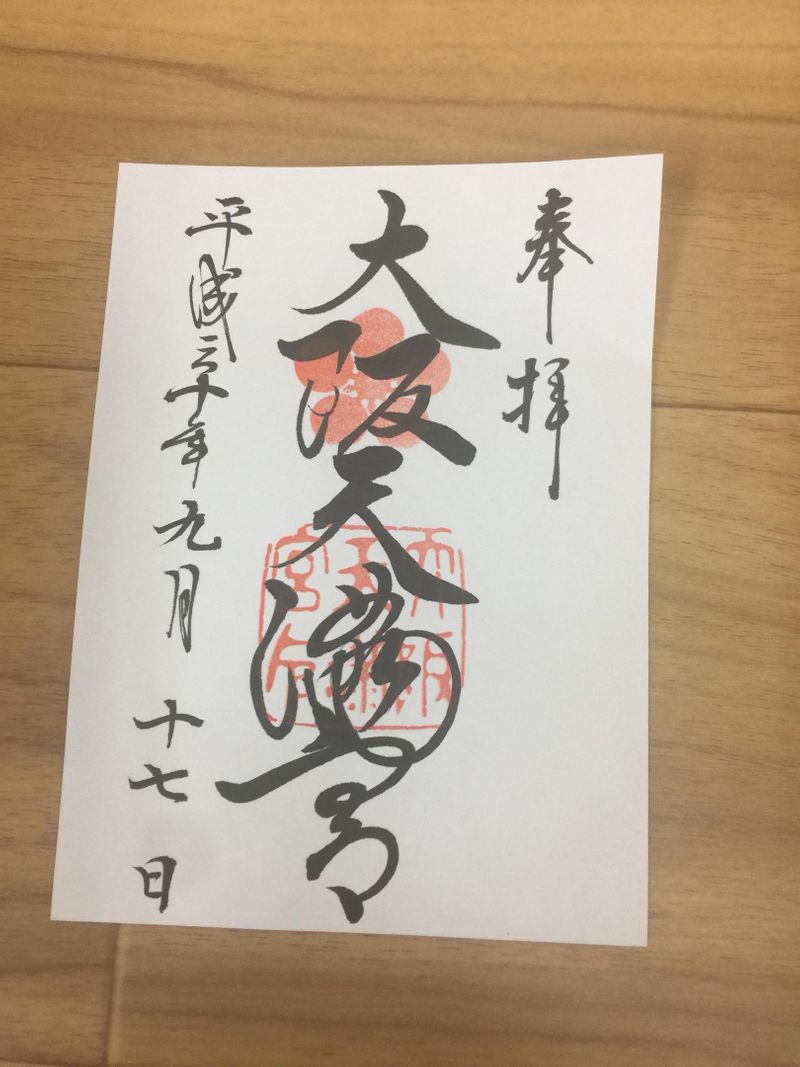 奉拝
大阪天満宮
平成三十年九月十七日